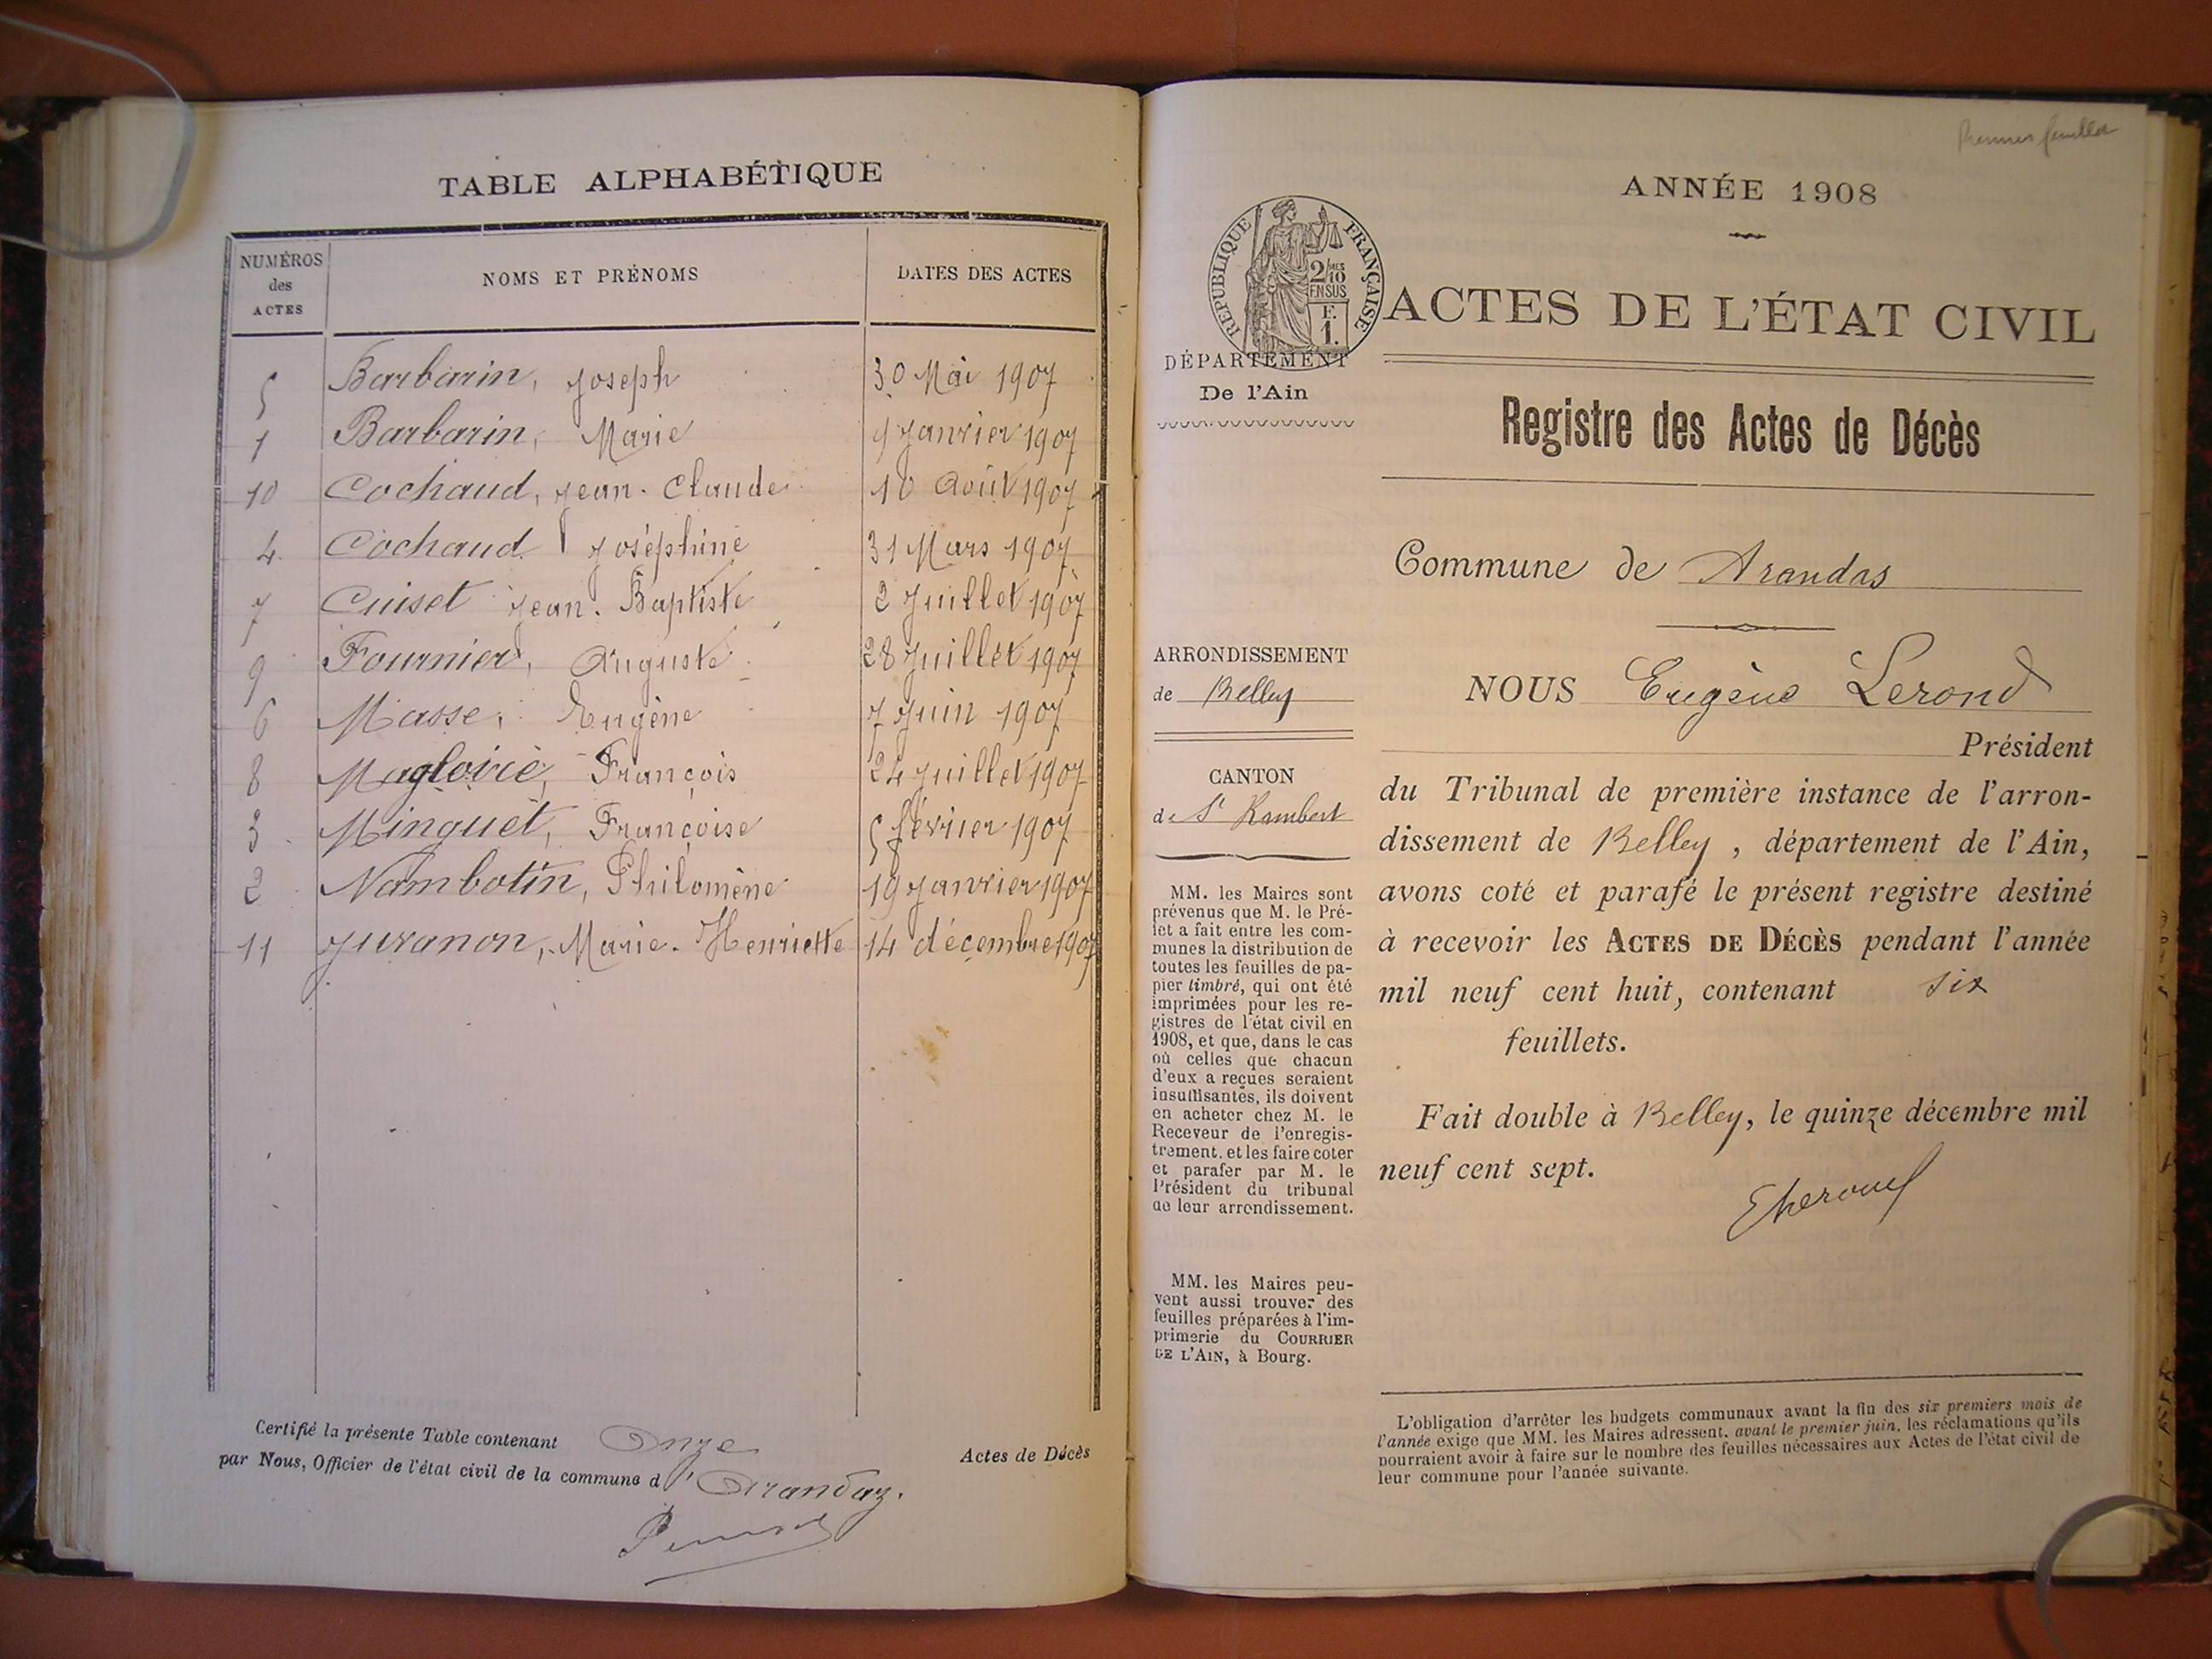 TABLE ALPHABÉTIQUE
NUMÉROS des ACTES NOMS ET PRÉNOMS DATES DES ACTES
5 Barbarin, Joseph 30 Mai 1907
1 Barbarin, Marie 9 Janvier 1907
10 Cochaud, Jean-Claude 10 Août 1907
4 Cochaud Joséphine 31 Mars 1907
7 Cuiset Jean-Baptiste 2 Juillet 1907
9 Fournier, Auguste 28 Juillet 1907
6 Masse, Eugène 7 Juin 1907
8 Magloire, François 24 Juillet 1907
3 Minguet, Françoise 5 février 1907
2 Nambotin, Philomène 19 Janvier 1907
11 Juvanon, Marie-Henriette 14 décembre 1907
Certifié la présente Table contenant Onze Actes de Décès
par Nous, Officier de l'état civil de la commune d'Arandaz.
Premier feuillet
ANNÉE 1908
RÉPUBLIQUE FRANÇAISE
2/10MES
EN SUS
F.
1.
ACTES DE L'ÉTAT CIVIL
DÉPARTEMENT
De l'Ain
Registre des Actes de Décès
Commune de Arandas
ARRONDISSEMENT
de Belley
CANTON
de St Rambert
MM. les Maires sont
prévenus que M. le Pré-
fet a fait entre les com-
munes la distribution de
toutes les feuilles de pa-
pier timbré, qui ont été
imprimées pour les re-
gistres de l'état civil en
1908, et que, dans le cas
où celles que chacun
d'eux a reçues seraient
insuffisantes, ils doivent
en acheter chez M. le
Receveur de l'enregis-
trement, et les faire coter
et parafer par M. le
Président du tribunal
de leur arrondissement.
MM. les Maires peu-
vent aussi trouver des
feuilles préparées à l'im-
primerie du COURRIER
DE L'AIN, à Bourg.
NOUS Eugène Lerond
Président
du Tribunal de première instance de l'arron-
dissement de Belley, département de l'Ain,
avons coté et parafé le présent registre destiné
à recevoir les ACTES DE DÉCÈS pendant l'année
mil neuf cent huit, contenant six
feuillets.
Fait double à Belley, le quinze décembre mil
neuf cent sept.
L'obligation d'arrêter les budgets communaux avant la fin des six premiers mois de
l'année exige que MM. les Maires adressent, avant le premier juin, les réclamations qu'ils
pourraient avoir à faire sur le nombre des feuilles nécessaires aux Actes de l'état civil de
leur commune pour l'année suivante.